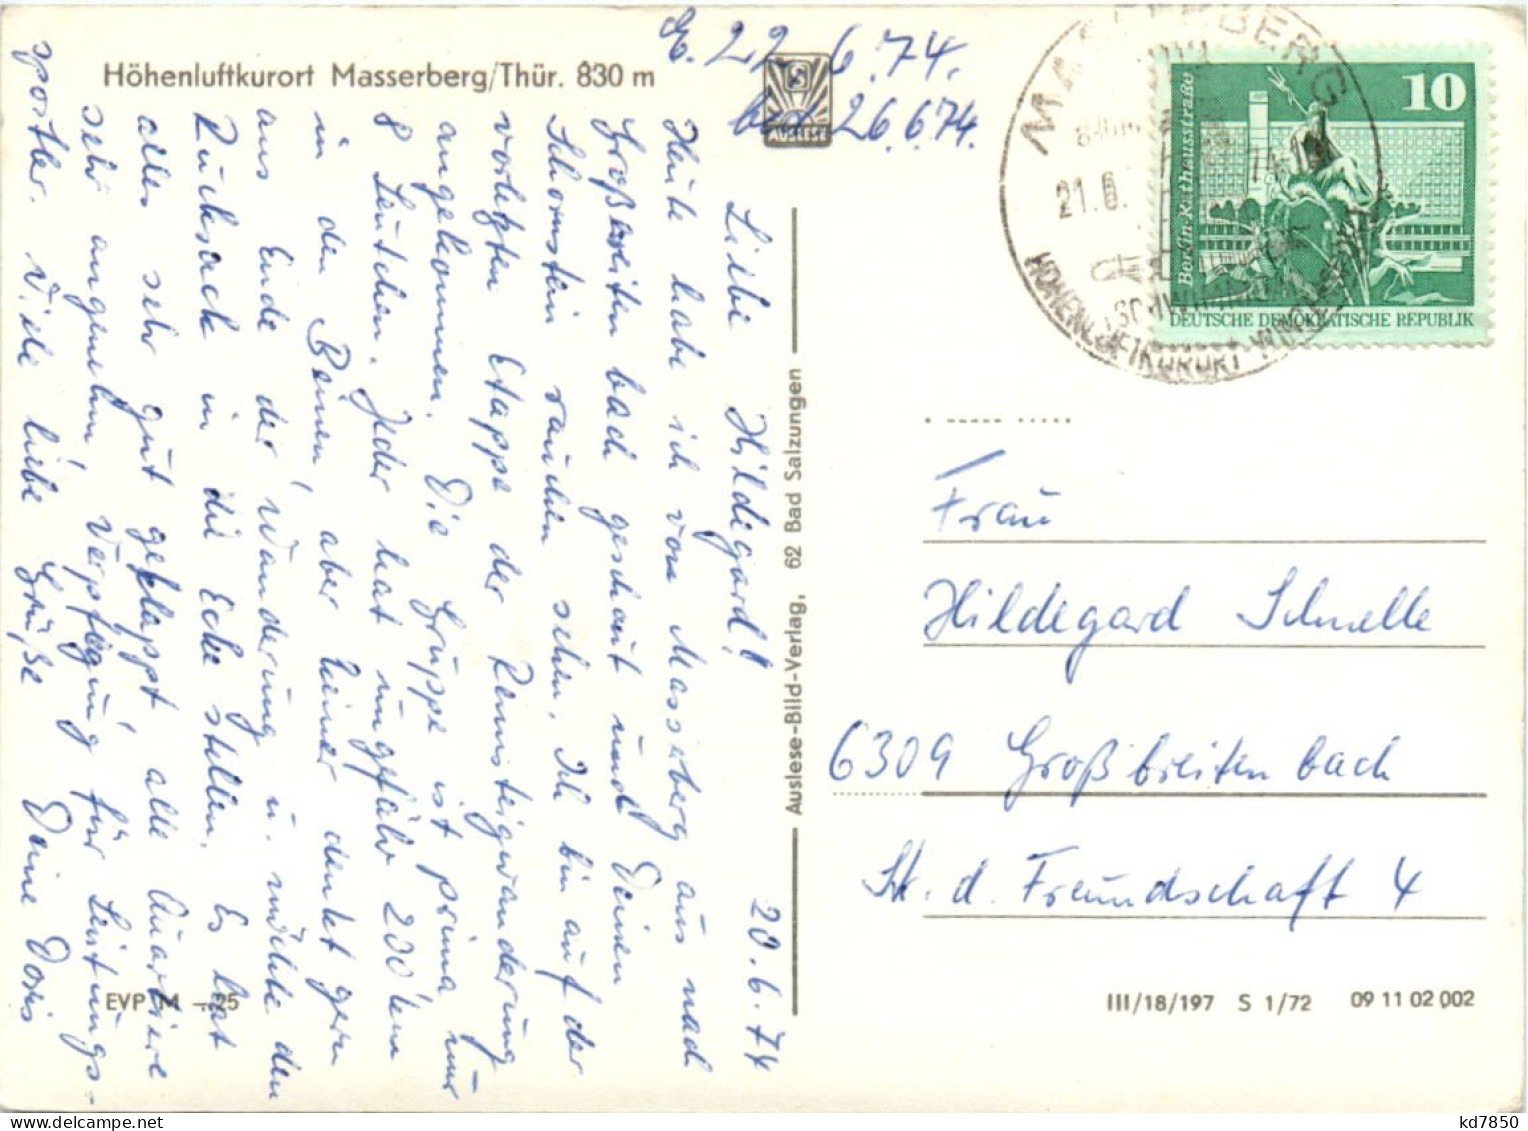 Höhenluftkurort Masserberg/Thür. 830 m
22.6.74.
26.6.74.
AUSLESE
20.6.74
Liebe Hildegard!
Heute habe ich von Masserberg aus nach
Großbreitenbach geschaut und Deinen
Schornstein rauchen sehen. Ich bin auf der
vorletzten Etappe der Rennsteigwanderung
angekommen. Die Gruppe ist prima nur
8 Leutchen. Jeder hat ungefähr 200 km
in den Beinen, aber keiner denkt gern
ans Ende der Wanderung u. möchte den
Rucksack in die Ecke stellen. Es hat
alles sehr gut geklappt, alle Quartiere
sehr angenehm, Verpflegung für Leistungs-
sportler. Viele liebe Grüße Deine Doris
EVP M –,25
Auslese-Bild-Verlag, 62 Bad Salzungen
MASSERBERG
21.6.
HÖHENLUFTKURORT
10
Berlin-Rathausstraße
DEUTSCHE DEMOKRATISCHE REPUBLIK
Frau
Hildegard Schnelle
6309 Großbreitenbach
Str. d. Freundschaft 4
III/18/197 S 1/72 09 11 02 002
kd7850